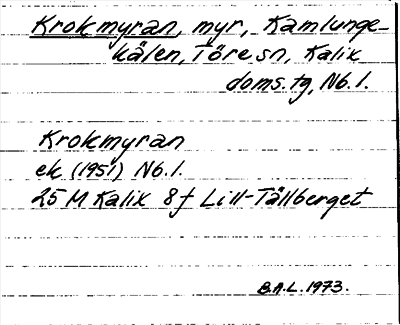 Krokmyran, myr, Kamlunge-
kälen, Töre sn, Kalix
doms. tg, Nb. l.
Krokmyran
ek (1951) Nb. l.
25 M Kalix 8f Lill-Tällberget
B.A.L. 1973.